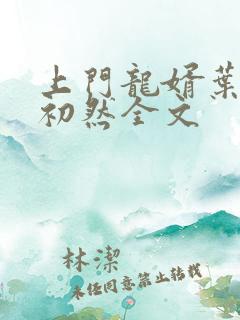 上門龍婿葉
初然全文
林潔
未经同意禁止转载